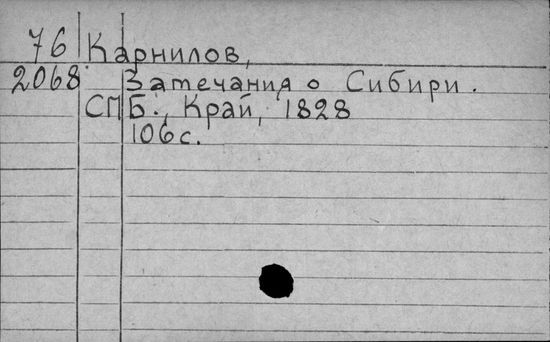 76 Карнилов,
2068 Затечания о Сибири.
СПБ., Край, 1828
106 с.